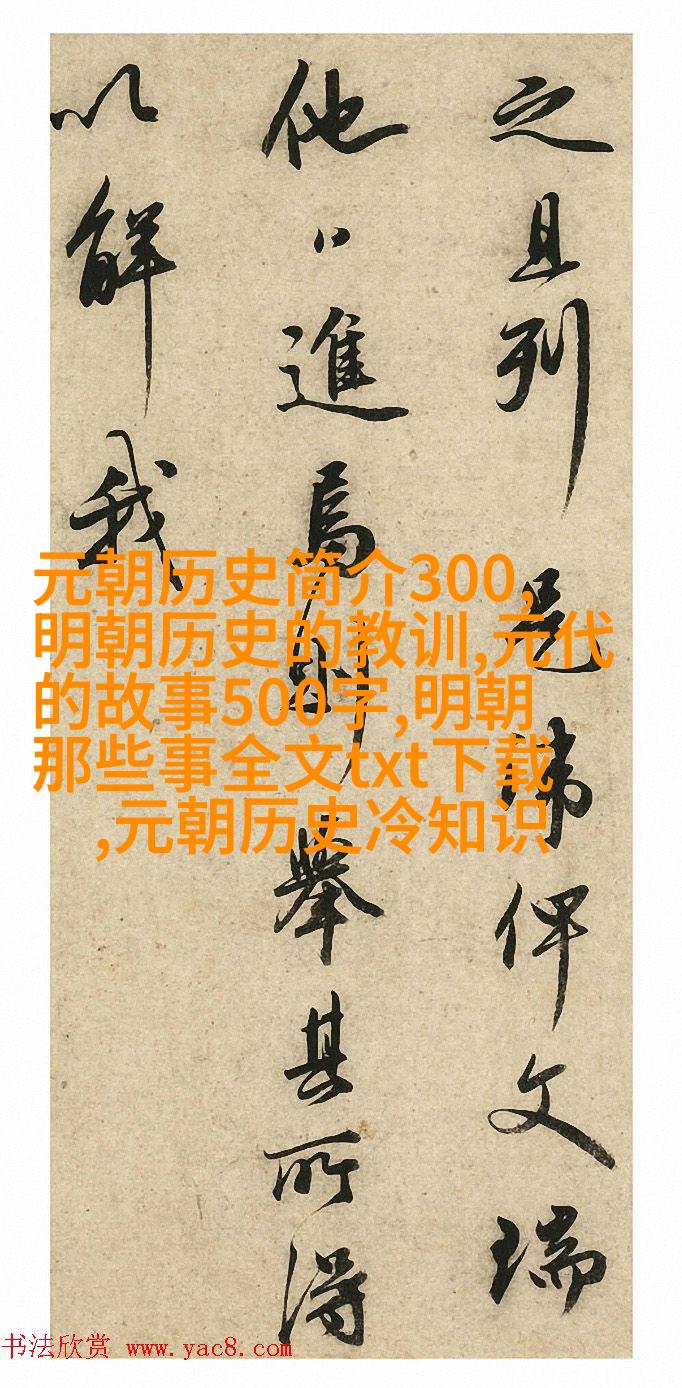 之且列是諱俾文瑞
他日進焉則舉其所得
以解我
元朝历史简介300,
明朝历史的教训,元代
的故事500字,明朝
那些事全文txt下载
,元朝历史冷知识
书法欣赏 www.yac8.com